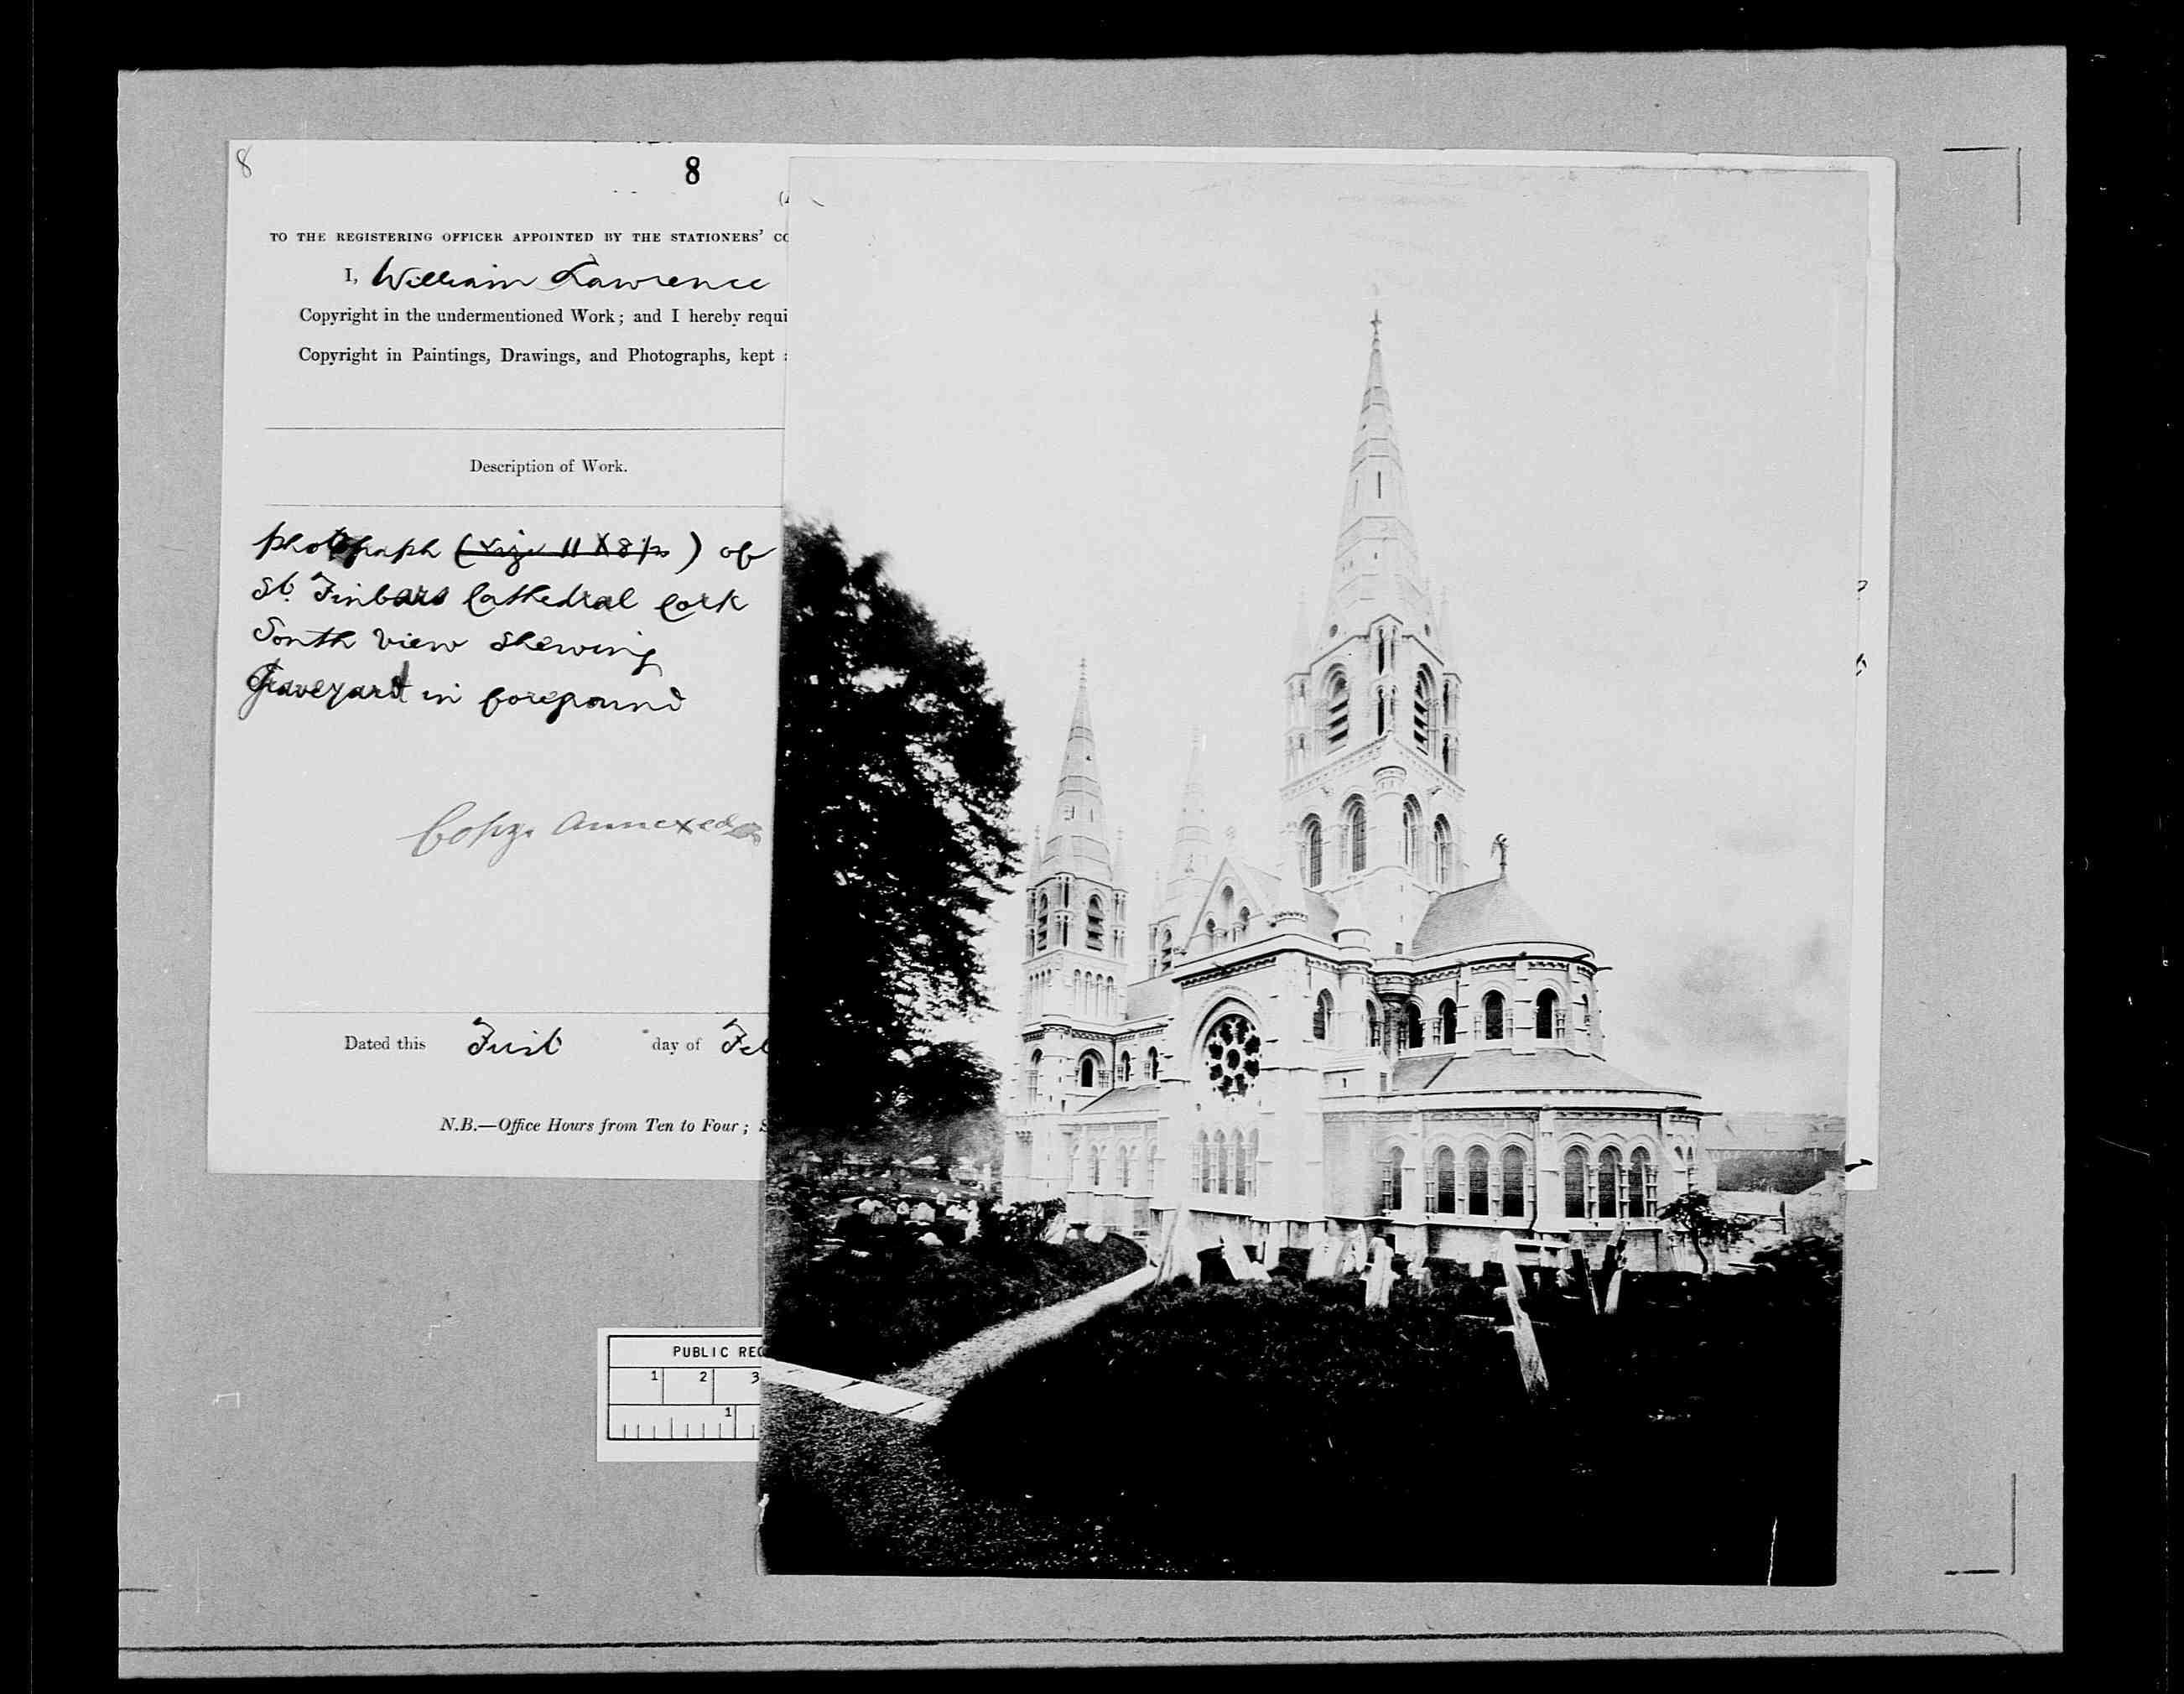 8
8
TO THE REGISTERING OFFICER APPOINTED BY THE STATIONERS' CO
I, William Lawrence
Copyright in the undermentioned Work; and I hereby requi
Copyright in Paintings, Drawings, and Photographs, kept
Description of Work.
photograph (size 11 X 8½) of
St. Finbars Cathedral Cork
South view shewing
Graveyard in foreground
Copy annexed
Dated this First day of Feb
N.B.—Office Hours from Ten to Four; S
PUBLIC REC
1 2 3
1